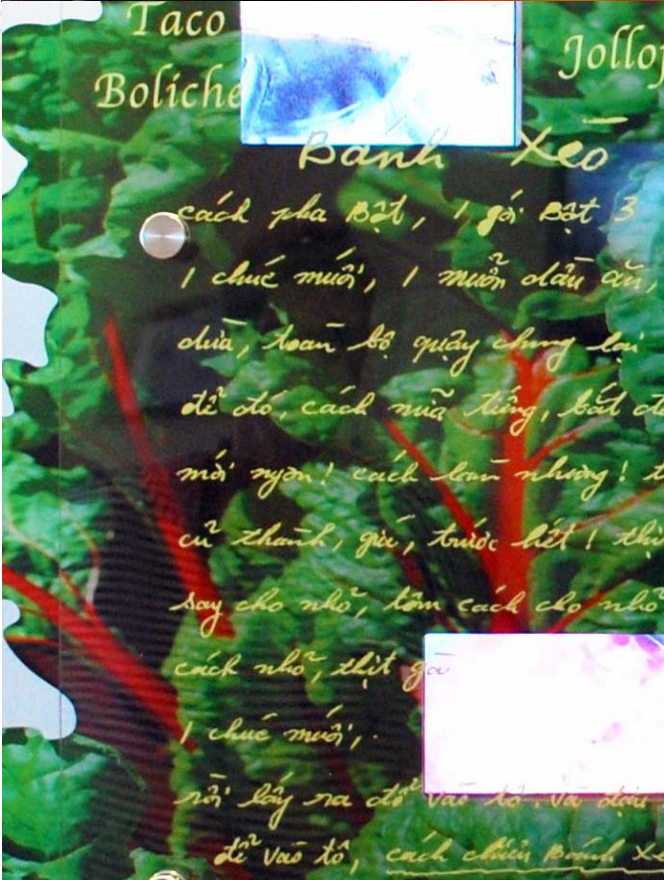 Taco
Boliche
Jollo
Bánh Xèo
cách pha Bột, 1 gói Bột 3
1 chúc muối, 1 muỗn dầu ăn,
dừa, toàn bộ quậy chung lại
để đó, cách nữa tiếng, bắt đ
mới ngon! cách làm nhưng!
cũ thanh, giá, trước hết! thị
say cho nhỏ, tôm cách cho nhỏ
cách nhỏ, thịt gà
1 chúc muối,
rồi lấy ra đổ vào tô. Và đậu
để vào tô, cách chiên Bánh X